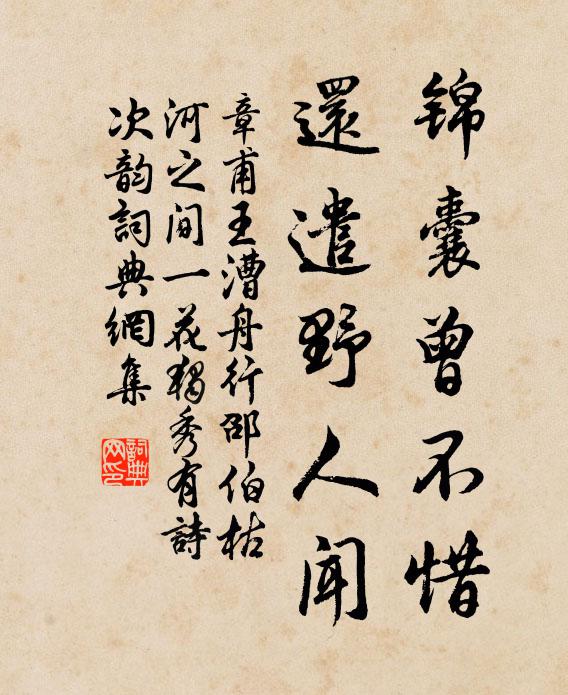 锦囊曾不惜
還遣野人聞
章甫王漕舟行邵伯枯
河之间一花獨秀有詩
次韵詞典網集
詞典
网印